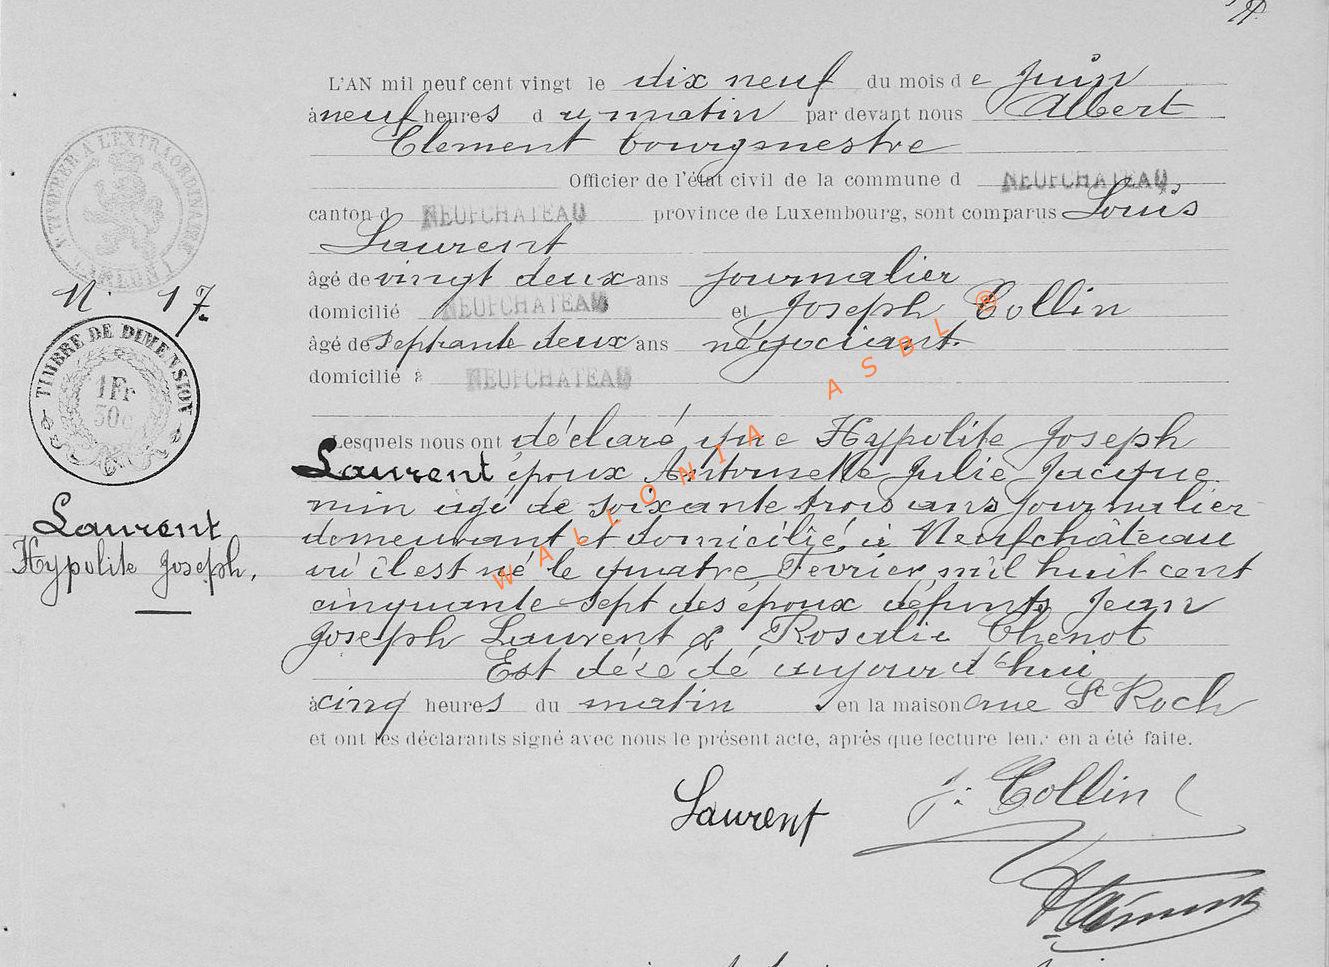 L'AN mil neuf cent vingt le dix neuf du mois de Juin
à neuf heures du matin par devant nous Albert
Clement bourgmestre
Officier de l'état civil de la commune d NEUFCHATEAU
canton d NEUFCHATEAU province de Luxembourg, sont comparus Louis
Laurent
âgé de vingt deux ans journalier
domicilié NEUFCHATEAU et Joseph Collin
âgé de septante deux ans négociant
domicilié à NEUFCHATEAU
Lesquels nous ont déclaré que Hypolite Joseph
Laurent époux Antoinette Julie Jacque
min agé de soixante trois ans journalier
demeurant et domicilié à Neufchâteau
où il est né le quatre Fevrier mil huit cent
cinquante sept des époux défunts Jean
Joseph Laurent & Rosalie Chenot
Est décédé aujourd'hui
à cinq heures du matin en la maison rue St Roch
et ont les déclarants signé avec nous le présent acte, après que lecture leur en a été faite.
Laurent J. Collin
AClément
TIMBRER A L'EXTRAORDINAIRE
ARLON
N. 17.
TIMBRE DE DIMENSION
1 Fr
50c
Laurent
Hypolite Joseph.
WALLONIA ASBL ®